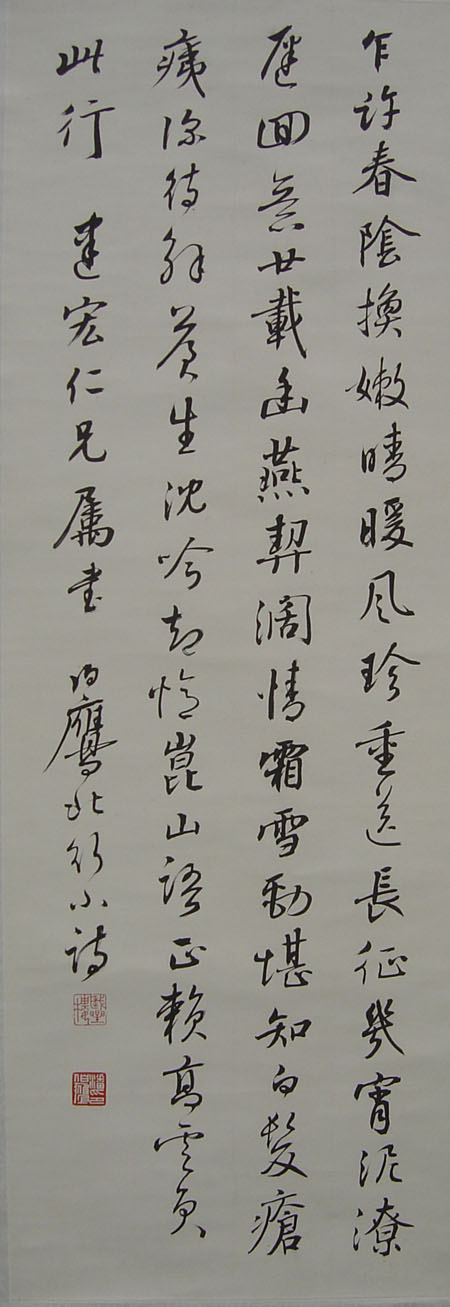 乍許春陰換嫩晴暖風珍重送長征幾宵泥潦
遲回意廿載幽燕契闊情霜雪勁堪知白髮瘡
痍深待解蒼生沈吟却憶崑山語正賴高雲負
此行 建宏仁兄属書 伯鷹北行小詩